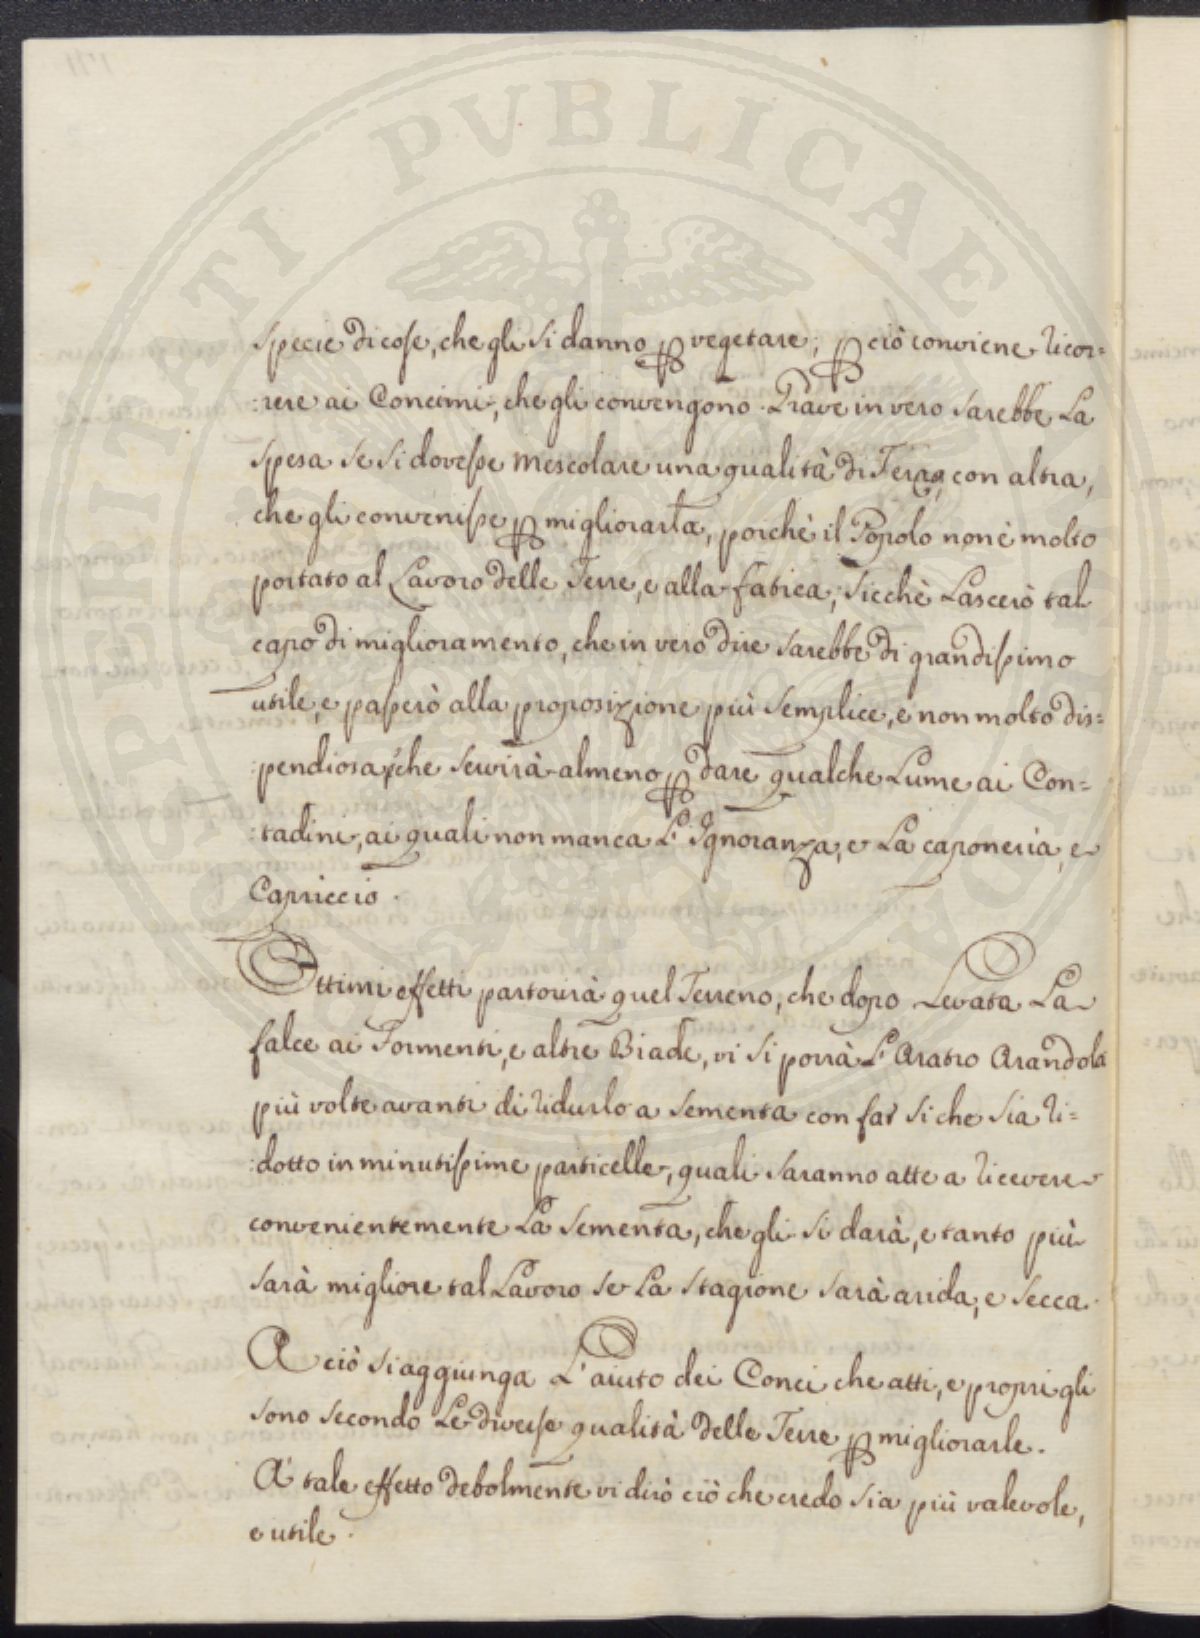 PROSPERITATI PUBLICAE
specie di cose, che gli si danno p vegetare; p ciò conviene ricor=
:rere ai Concimi, che gli convengono. Grave in vero sarebbe La
spesa se si dovesse mescolare una qualità di Terra, con altra,
che gli convenisse p migliorarla, poichè il Popolo non è molto
portato al Lavoro delle Terre, e alla fatica; sicchè Lascerò tal
capo di miglioramento, che in vero dire sarebbe di grandissimo
utile, e passerò alla proposizione più semplice, e non molto dis=
:pendiosa, che servirà almeno p dare qualche Lume ai Con=
:tadini, ai quali non manca L'Ignoranza, e La caponeria, e
Capriccio.
Ottimi effetti partorirà quel Terreno, che dopo Levata La
falce ai Formenti, e altre Biade, vi si porrà L'Aratro Arandola
più volte avanti di ridurlo a sementa con far si che sia ri=
:dotto in minutissime particelle, quali saranno atte a ricevere
convenientemente La sementa, che gli si darà, e tanto più
sarà migliore tal Lavoro se La stagione sarà arida, e secca.
A ciò si aggiunga L'aiuto dei Conci che atti, e propri gli
sono secondo Le diverse qualità delle Terre p migliorarle.
A tale effetto debolmente vi dirò ciò che credo sia più valevole,
e utile.